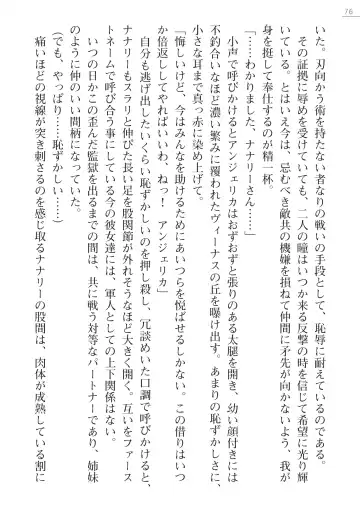 76
いた。刃向かう術を持たない者なりの戦いの手段として、恥辱に耐えているのである。
その証拠に辱めを受けていても、二人の瞳はいつか来る反撃の時を信じて光り輝
いている。とはいえ今は、忌むべき敵共の機嫌を損ねて仲間に矛先が向かないよう、我が
身を挺して奉仕するのが精一杯。
「……わかりました、ナナリーさん……」
小声で呼びかけるとアンジェリカはおずおずと張りのある太腿を開き、幼い顔付きには
不釣合いなほど濃い繁みに覆われたヴィーナスの丘を曝け出す。あまりの恥ずかしさに、
小さな耳まで真っ赤に染め上げて。
「悔しいけど、今はみんなを助けるためにあいつらを悦ばせるしかない。この借りはいつ
か倍返ししてやればいいわ、ねっ！　アンジェリカ」
自分も逃げ出したいくらい恥ずかしいのを押し殺し、冗談めいた口調で呼びかけると、
ナナリーもスラリと伸びた長い足を股関節が外れそうなほど大きく開く。互いをファース
トネームで呼び合う事にしている今の彼女達には、軍人としての上下関係はない。
いつの日かこの歪んだ監獄を出るまでの間は、共に戦う対等なパートナーであり、姉妹
のように仲のいい間柄になっていた。
（でも、やっぱり……恥ずかしい……）
痛いほどの視線が突き刺さるのを感じ取るナナリーの股間は、肉体が成熟している割に